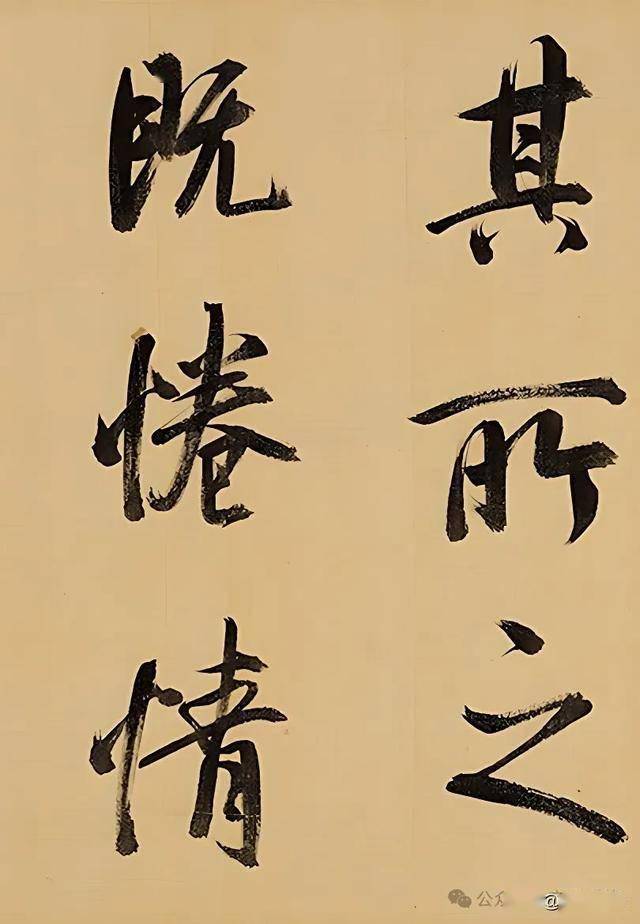 其所之
既惓情
公众
@